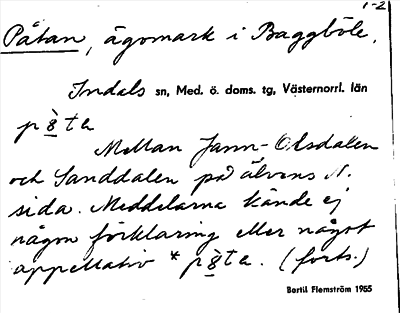 1-2
Påtan, ägomark i Baggböle.
Indals sn, Med. ö. doms. tg, Västernorrl. län
Mellan Jann-Olsdalen
och Sanddalen på älvens N.
sida. Meddelarna kände ej
någon förklaring eller något
appellativ * (forts.)
Bertil Flemström 1955